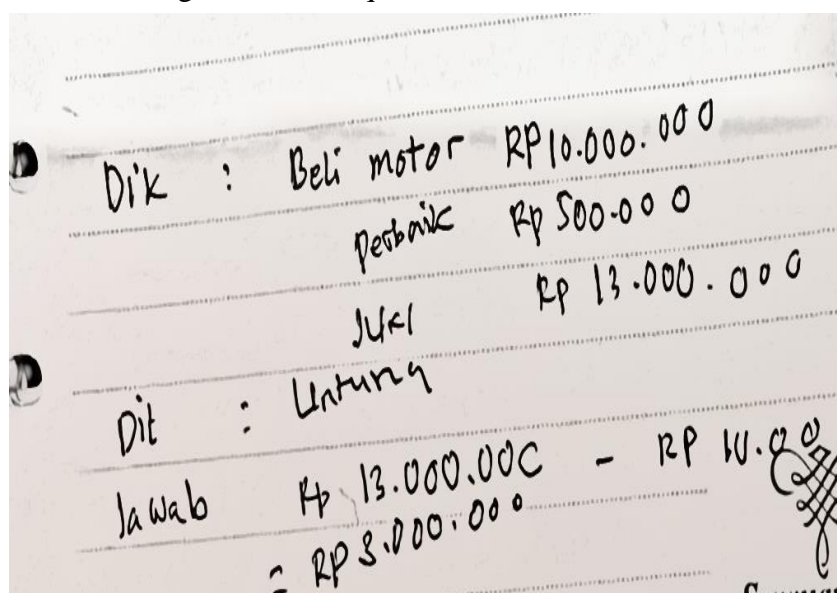 Dik : Beli motor RP 10.000.000
perbaik Rp 500.000
Jual Rp 13.000.000
Dit : Untung
Jawab Rp 13.000.000 - RP 10.00
= RP 3.000.000